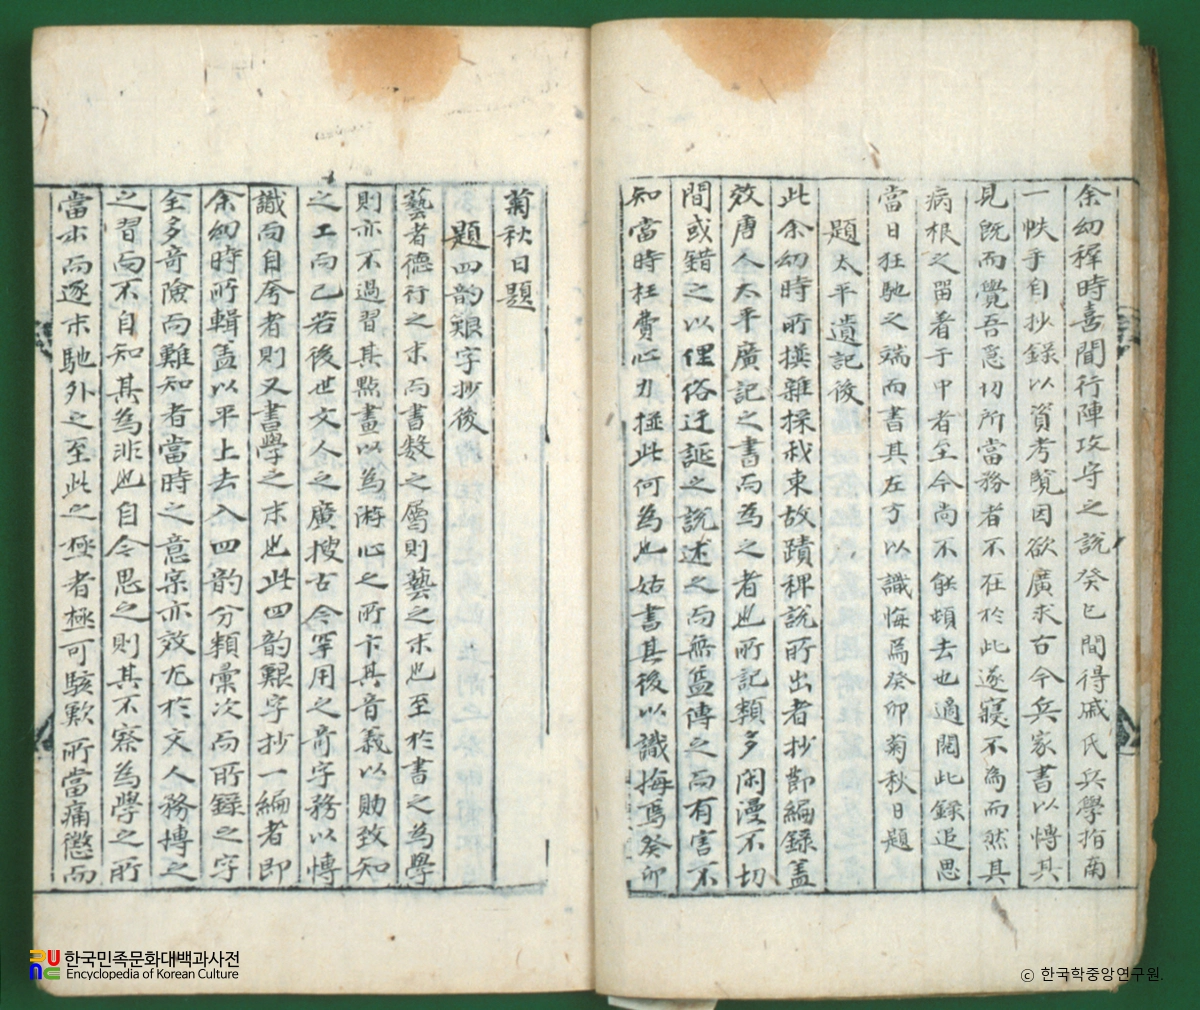 余幼穉時喜閒行陣攻守之說癸巳間得戚氏兵學指南
一帙手自抄錄以資考覽因欲廣求古今兵家書以博其
見旣而覺吾急切所當務者不在於此遂寢不為而然其
病根之留着于中者至今尚不能頓去也適閱此錄追思
當日狂馳之端而書其左方以識悔焉癸卯菊秋日題
題太平遺記後
此余幼時所撰雜採我東故蹟稗說所出者抄節編錄盖
效唐人太平廣記之書而為之者也所記類多閑漫不切
間或錯之以俚俗迂誕之說述之而無益傳之而有害不
知當時枉費心力捱此何為也姑書其後以識悔焉癸卯
菊秋日題
題四韵艱字抄後
藝者德行之末而書數之屬則藝之末也至於書之為學
則亦不過習其點畫以為游心之所卞其音義以助致知
之工而已若後世文人之廣搜古今罕用之奇字務以博
識而自夸者則又書學之末也此四韵艱字抄一編者即
余幼時所輯盖以平上去入四韵分類彙次而所錄之字
全多奇險而難知者當時之意案亦效尤於文人務博之
之習而不自知其為非也自今思之則其不察為學之所
當本而逐末馳外之至此之極者極可駭歎所當痛懲而
한국민족문화대백과사전
Encyclopedia of Korean Culture
© 한국학중앙연구원.